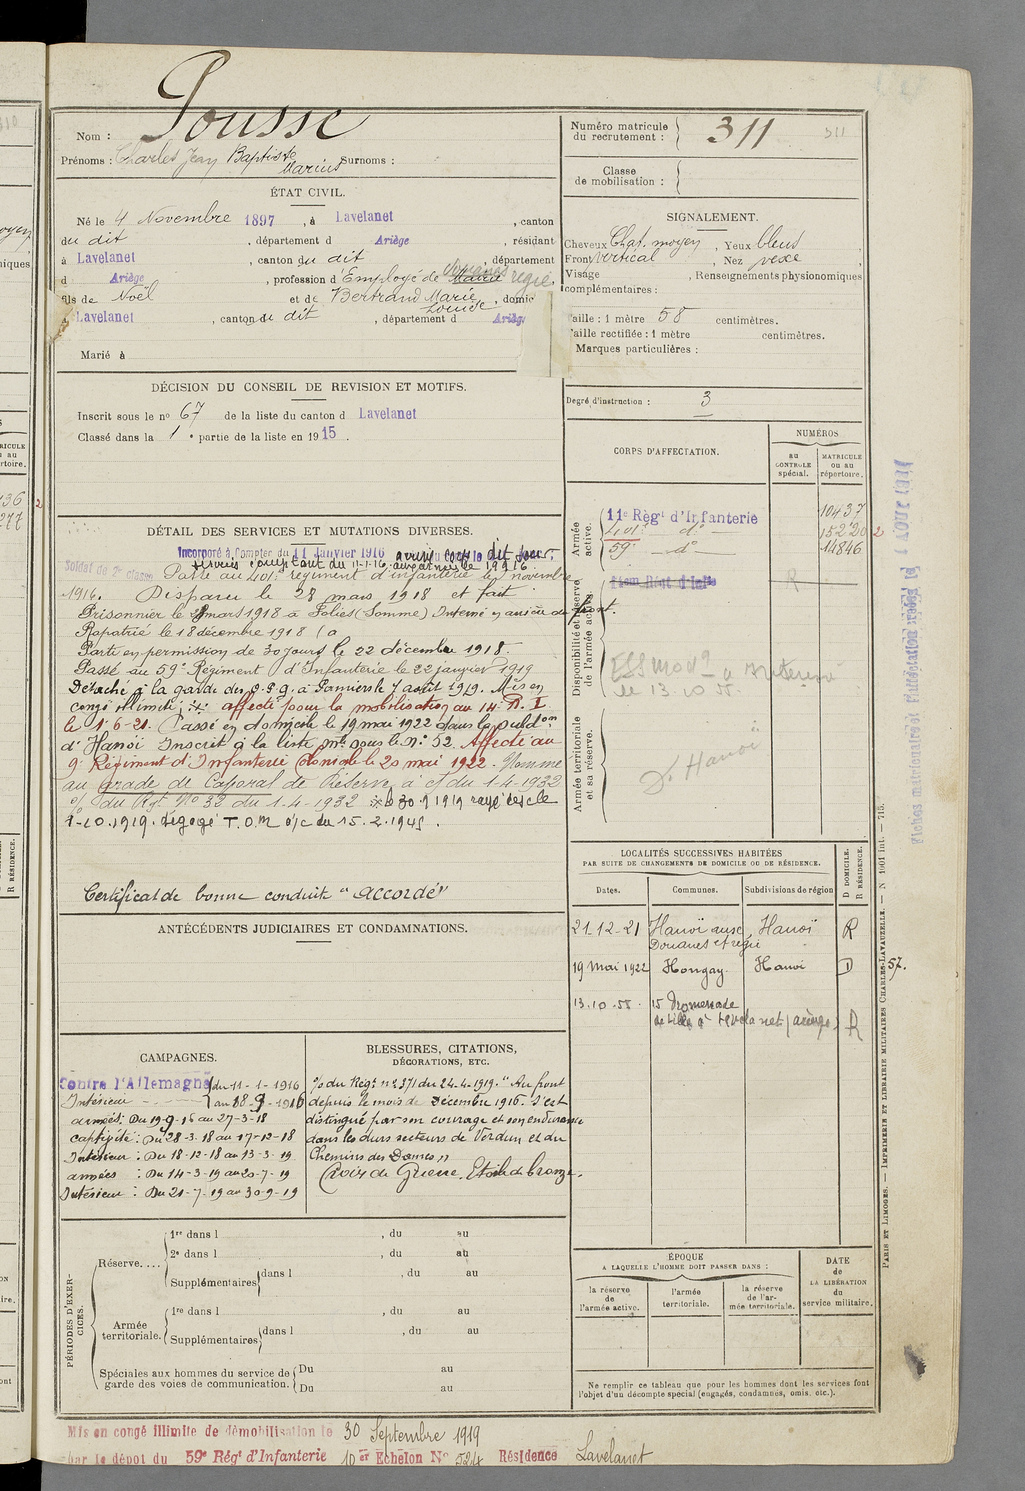 Pousse
Nom :
Prénoms : Charles Jean Baptiste Marius Surnoms :
Numéro matricule du recrutement : 311
311
Classe de mobilisation :
ÉTAT CIVIL.
Né le 4 Novembre 1897, à Lavelanet, canton
du dit, département d Ariège, résidant
à Lavelanet, canton du dit, département
d Ariège, profession d'Employé de douanes régie,
fils de Noël et de Bertrand Marie Louise, domic
Lavelanet, canton de dit, département d Arièg
Marié à
SIGNALEMENT.
Cheveux Chat. moyen, Yeux bleus,
Front vertical, Nez vexe,
Visage , Renseignements physionomiques
complémentaires :
aille : 1 mètre 58 centimètres.
aille rectifiée : 1 mètre centimètres.
Marques particulières :
DÉCISION DU CONSEIL DE REVISION ET MOTIFS.
Inscrit sous le nº 67 de la liste du canton d Lavelanet
Classé dans la 1e partie de la liste en 1915.
Degré d'instruction : 3
CORPS D'AFFECTATION.
NUMÉROS
au CONTRÔLE spécial.
MATRICULE ou au répertoire.
Armée active.
11e Régt d'Infanterie 10437
401e dº 15220
59e dº 14846
Disponibilité et réserve de l'armée active.
R
le 13.10.55.
Armée territoriale et sa réserve.
D. Hanoï
DÉTAIL DES SERVICES ET MUTATIONS DIVERSES.
Incorporé à compter du 11 Janvier 1916
Soldat de 2e classe
Passé au 401e régiment d'infanterie le novembre
1916. Disparu le 28 mars 1918 et fait
Prisonnier le mars 1918 à Folies (Somme) Interné en arrière du front.
Rapatrié le 18 décembre 1918
Parti en permission de 30 jours le 22 décembre 1918.
Passé au 59e Régiment d'Infanterie le 22 janvier 1919
Détaché à la garde des P.G. à Pamiers le 7 août 1919. Mis en
congé illimité affecté pour la mobilisation au 14e R. I
le 1-6-21. Passé en domicile le 19 mai 1922 dans la subdon
d'Hanoï Inscrit à la liste mle sous le nº 52. Affecté au
9e Régiment d'Infanterie Coloniale le 20 mai 1922. Nommé
au grade de Caporal de Réserve à c/ du 1-4-1932
o/ du Rgt Nº 32 du 1-4-1932 le 30.9.1919 rayé des cle
1-10.1919. dégagé T.O.M a/c du 15.2.1945.
Certificat de bonne conduite "accordé"
ANTÉCÉDENTS JUDICIAIRES ET CONDAMNATIONS.
LOCALITÉS SUCCESSIVES HABITÉES
PAR SUITE DE CHANGEMENTS DE DOMICILE OU DE RÉSIDENCE.
Dates. Communes. Subdivisions de région
D DOMICILE. R RÉSIDENCE.
21-12-21 Hanoï aux Douanes et régie Hanoï R
19 mai 1922 Hongay Hanoï D
57.
13.10.55. 15 Promenade de Lille à Lavelanet (Ariège) R
CAMPAGNES.
Contre l'Allemagne du 11-1-1916
Intérieur au 18-9-1916
armées : Du 19-9-16 au 27-3-18
captivité : Du 28-3-18 au 17-12-18
Intérieur : Du 18-12-18 au 13-3-19
armées : Du 14-3-19 au 20-7-19
Intérieur : Du 21-7-19 au 30-9-19
BLESSURES, CITATIONS,
DÉCORATIONS, ETC.
o/o du Régt nº 371 du 24-4-1919. "Au front
depuis le mois de Décembre 1916. S'est
distingué par son courage et son endurance
dans les durs secteurs de Verdun et du
Chemin des Dames"
Croix de Guerre. Etoile de bronze.
PÉRIODES D'EXERCICES.
Réserve....
1re dans l , du au
2e dans l , du au
Supplémentaires dans l , du au
Armée territoriale.
1re dans l , du au
Supplémentaires dans l , du au
Spéciales aux hommes du service de garde des voies de communication.
Du au
Du au
ÉPOQUE
A LAQUELLE L'HOMME DOIT PASSER DANS :
la réserve de l'armée active.
l'armée territoriale.
la réserve de l'armée territoriale.
DATE de LA LIBÉRATION du service militaire.
Ne remplir ce tableau que pour les hommes dont les services font
l'objet d'un décompte spécial (engagés, condamnés, omis, etc.).
Mis en congé illimité de démobilisation le 30 Septembre 1919
par le dépôt du 59e Régt d'Infanterie 10er Echelon Nº 524 Résidence Lavelanet
PARIS ET LIMOGES. — IMPRIMERIE ET LIBRAIRIE MILITAIRES CHARLES-LAVAUZELLE. — N 1001 int. — 715.